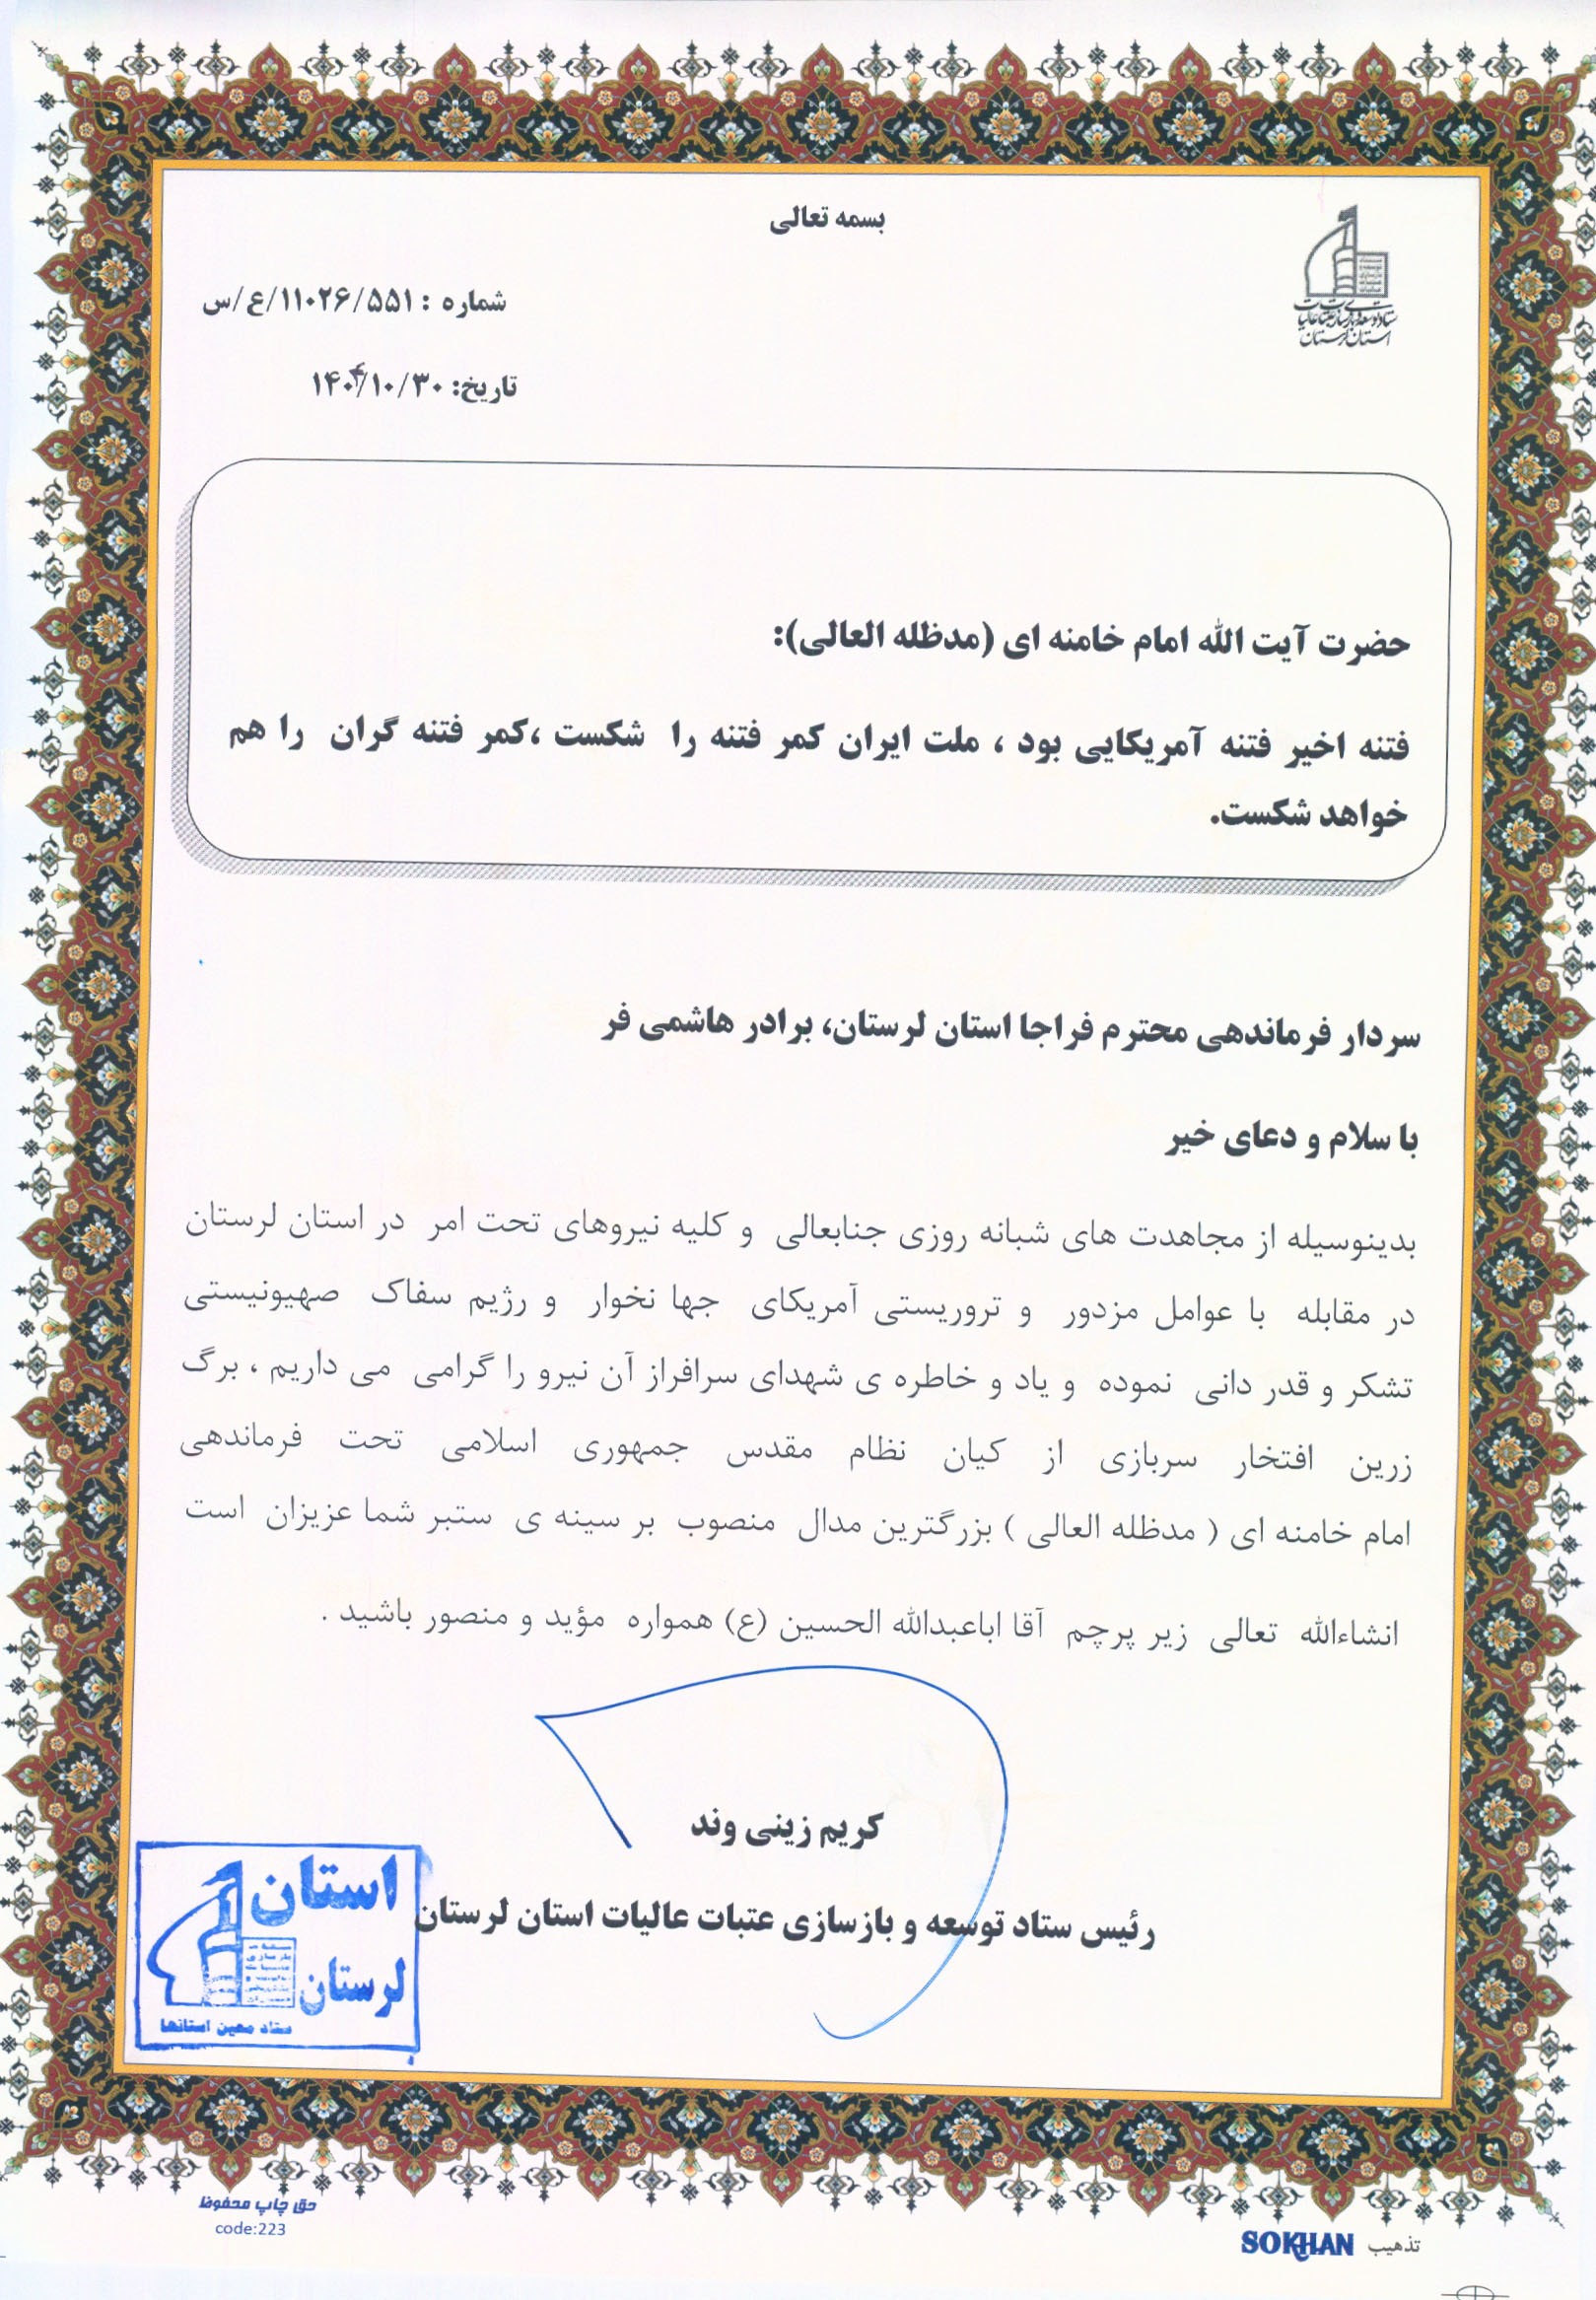 بسمه تعالی
ستاد توسعه و بازسازی عتبات عالیات
استان لرستان
شماره : ۱۱۰۲۶/۵۵۱/ع/س
تاریخ: ۱۴۰۴/۱۰/۳۰
حضرت آیت الله امام خامنه ای (مدظله العالی):
فتنه اخیر فتنه آمریکایی بود ، ملت ایران کمر فتنه را شکست ،کمر فتنه گران را هم
خواهد شکست.
سردار فرماندهی محترم فراجا استان لرستان، برادر هاشمی فر
با سلام و دعای خیر
بدینوسیله از مجاهدت های شبانه روزی جنابعالی و کلیه نیروهای تحت امر در استان لرستان
در مقابله با عوامل مزدور و تروریستی آمریکای جها نخوار و رژیم سفاک صهیونیستی
تشکر و قدر دانی نموده و یاد و خاطره ی شهدای سرافراز آن نیرو را گرامی می داریم ، برگ
زرین افتخار سربازی از کیان نظام مقدس جمهوری اسلامی تحت فرماندهی
امام خامنه ای ( مدظله العالی ) بزرگترین مدال منصوب بر سینه ی ستبر شما عزیزان است
انشاءالله تعالی زیر پرچم آقا اباعبدالله الحسین (ع) همواره مؤید و منصور باشید .
کریم زینی وند
رئیس ستاد توسعه و بازسازی عتبات عالیات استان لرستان
استان
لرستان
ستاد معین استانها
حق چاپ محفوظ
code:223
تذهیب SOKHAN